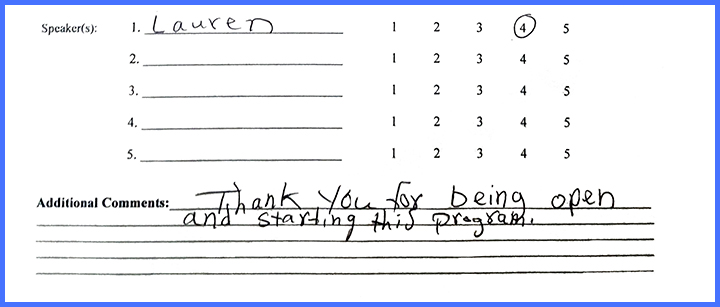 Speaker(s): 1. Lauren 1 2 3 4 5
2. 1 2 3 4 5
3. 1 2 3 4 5
4. 1 2 3 4 5
5. 1 2 3 4 5
Additional Comments: Thank you for being open
and starting this program.